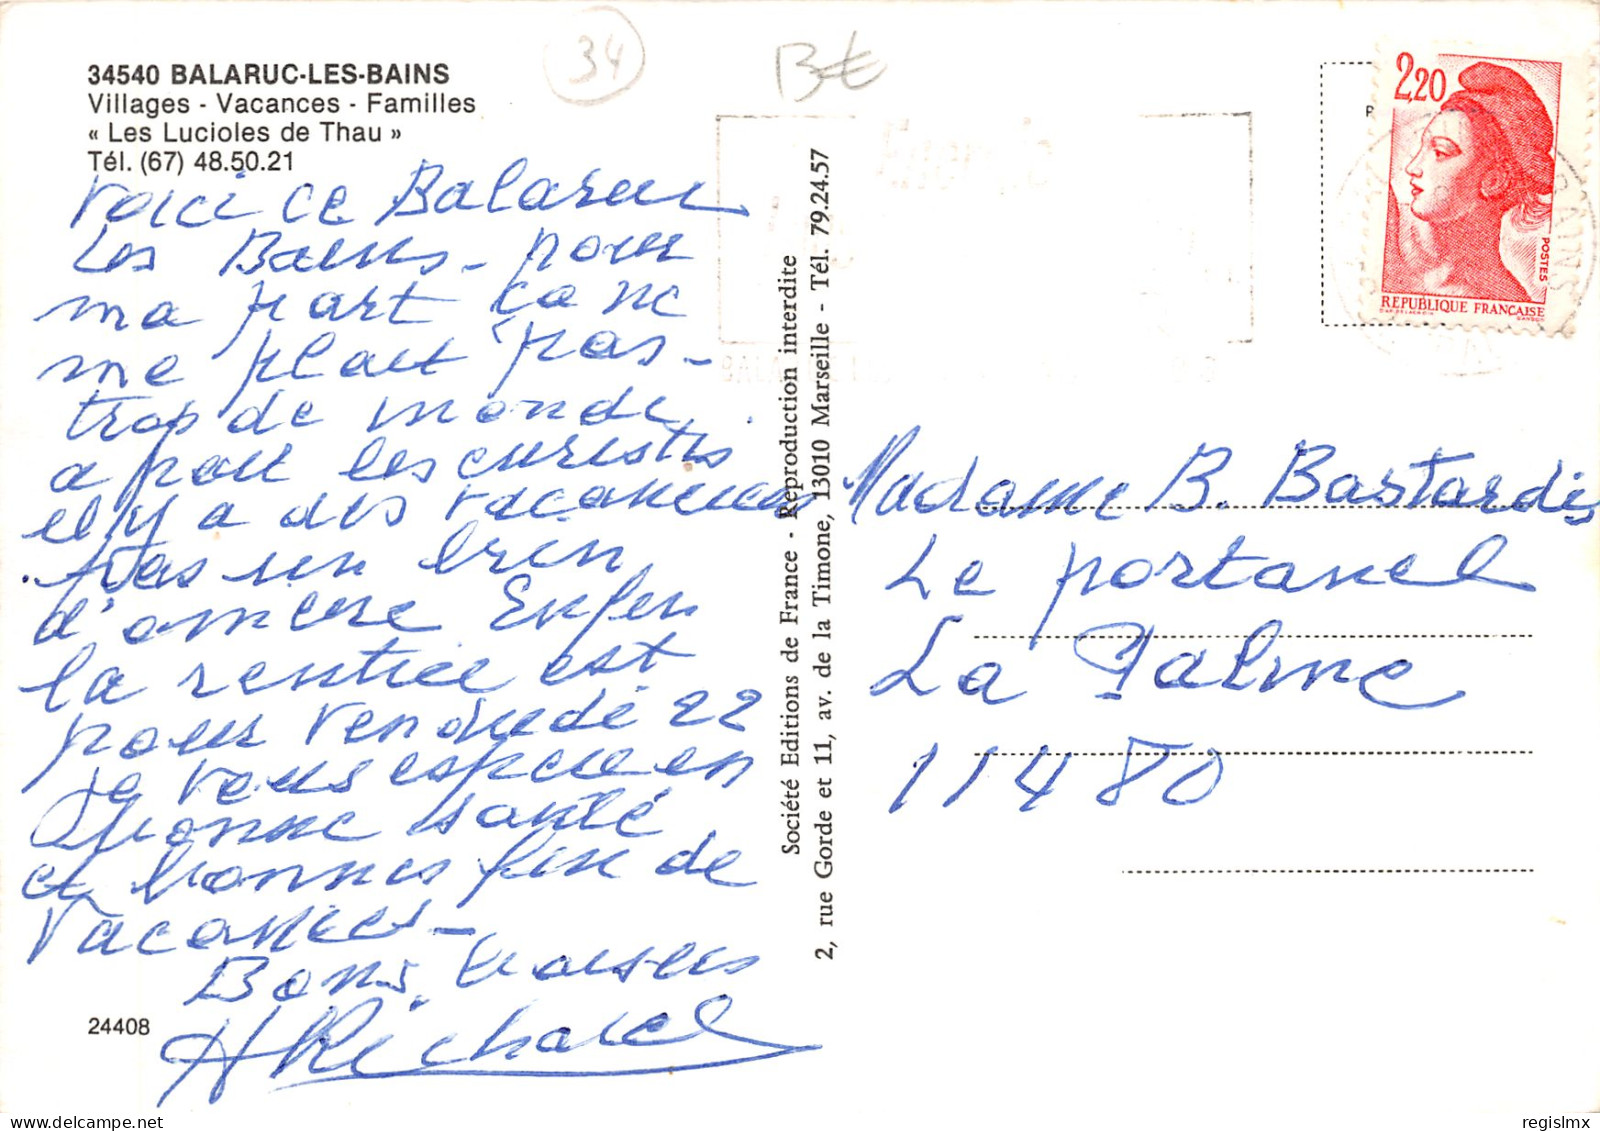 34540 BALARUC-LES-BAINS
Villages - Vacances - Familles
« Les Lucioles de Thau »
Tél. (67) 48.50.21
Voici ce Balaruc
Les Bains - pour
ma part ça ne
me plait pas -
trop de monde
a part les curistes
il y a des vacanciers
Pas un brin
d'ombre Enfin
la rentrée est
pour vendredi 22
Je vous espère en
bonne santé
et bonnes fin de
Vacances -
Bons baisers
A Richard
24408
Société Editions de France - Reproduction interdite
2, rue Gorde et 11, av. de la Timone, 13010 Marseille - Tél. 79.24.57
34
B €
2,20
POSTES
REPUBLIQUE FRANÇAISE
Madame B. Bastardis
Le portanel
La Palme
11480
regislmx